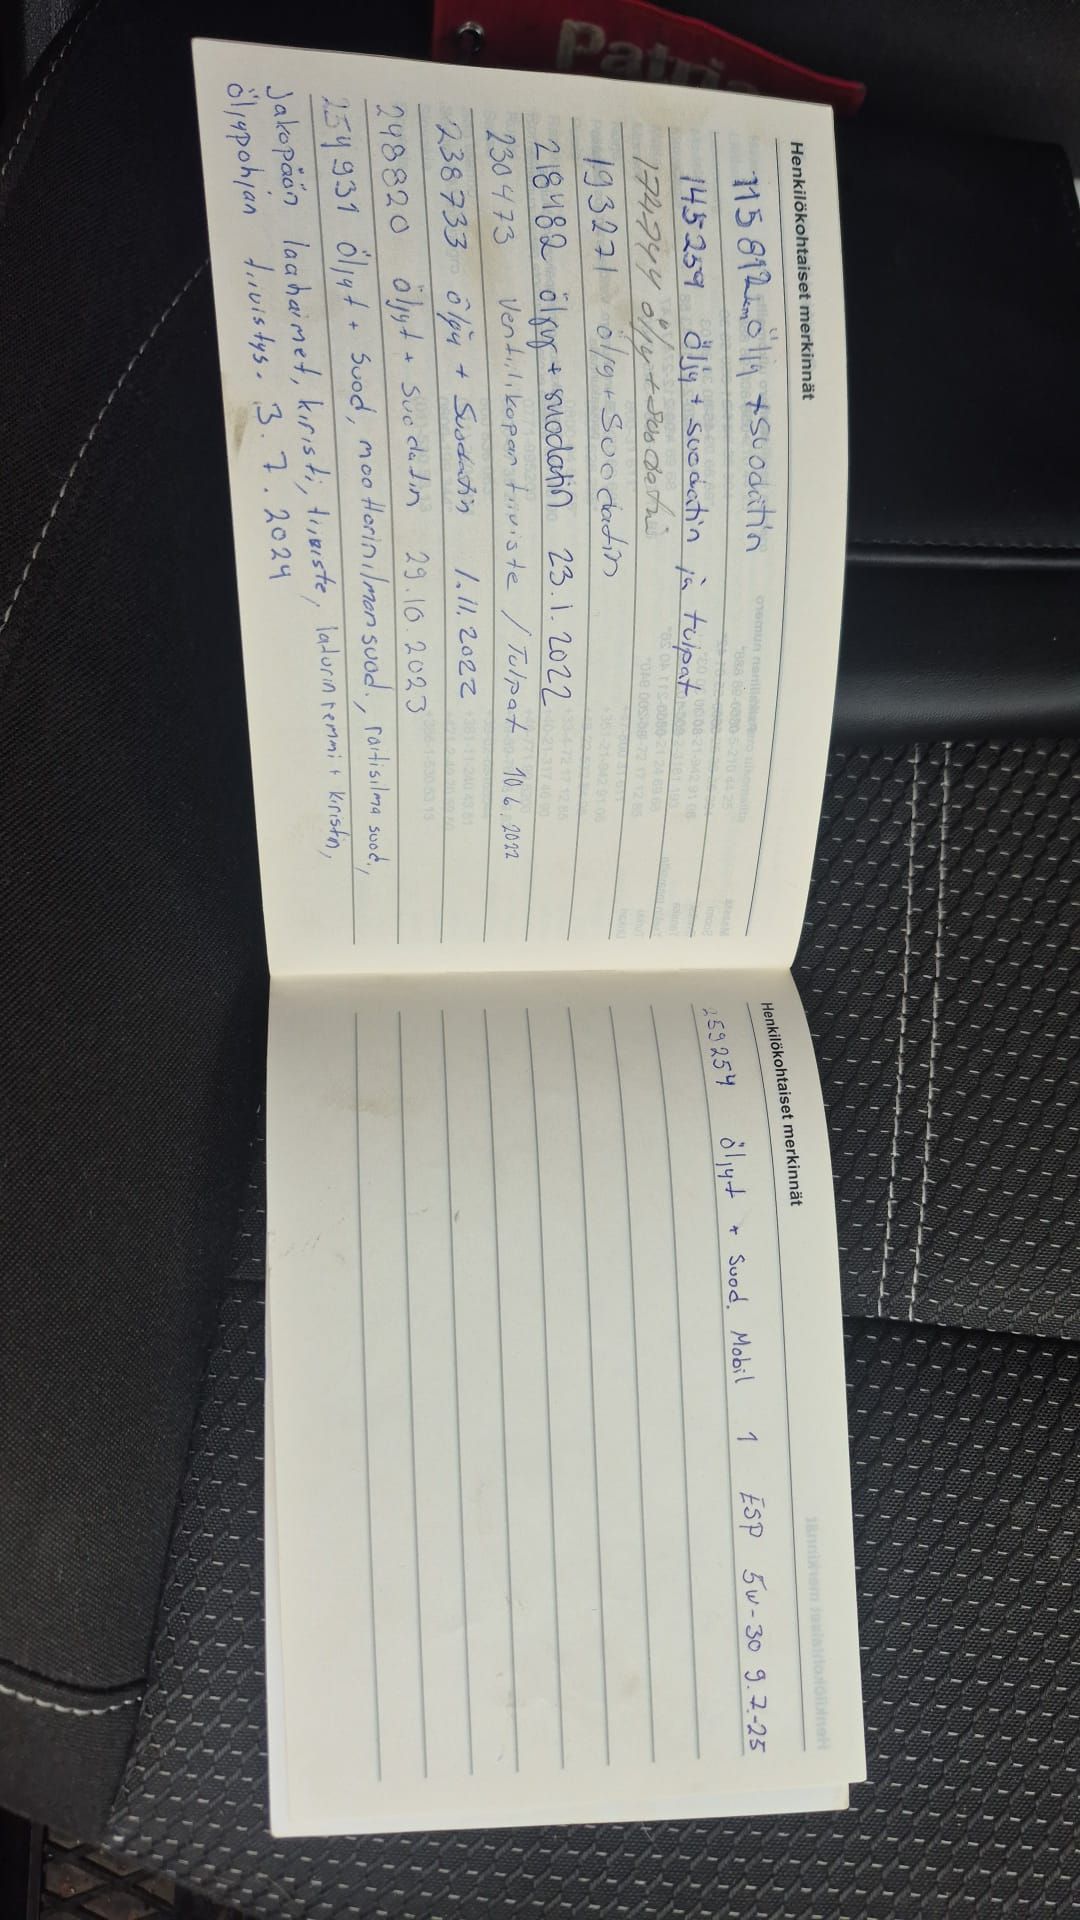 Patri
Henkilökohtaiset merkinnät
115812km Öljy + suodatin
145259 Öljy + suodatin ja tulpat
174744 öljy + suodatin
193271 öljy + Suodatin
218482 öljy + suodatin 23.1.2022
230473 Venttiilikopan tiiviste / Tulpat 10.6.2022
238733 öljy + Suodatin 1.11.2022
248820 öljyt + Suodatin 29.10.2023
254931 Öljyt + suod, moottorinilmansuod., raitisilma suod,
Jakopään laahaimet, kiristi, tiiviste, laturin remmi + kiristin,
Öljypohjan tiivistys. 3.7.2024
Henkilökohtaiset merkinnät
259254 Öljyt + Suod. Mobil 1 ESP 5w-30 9.7.-25